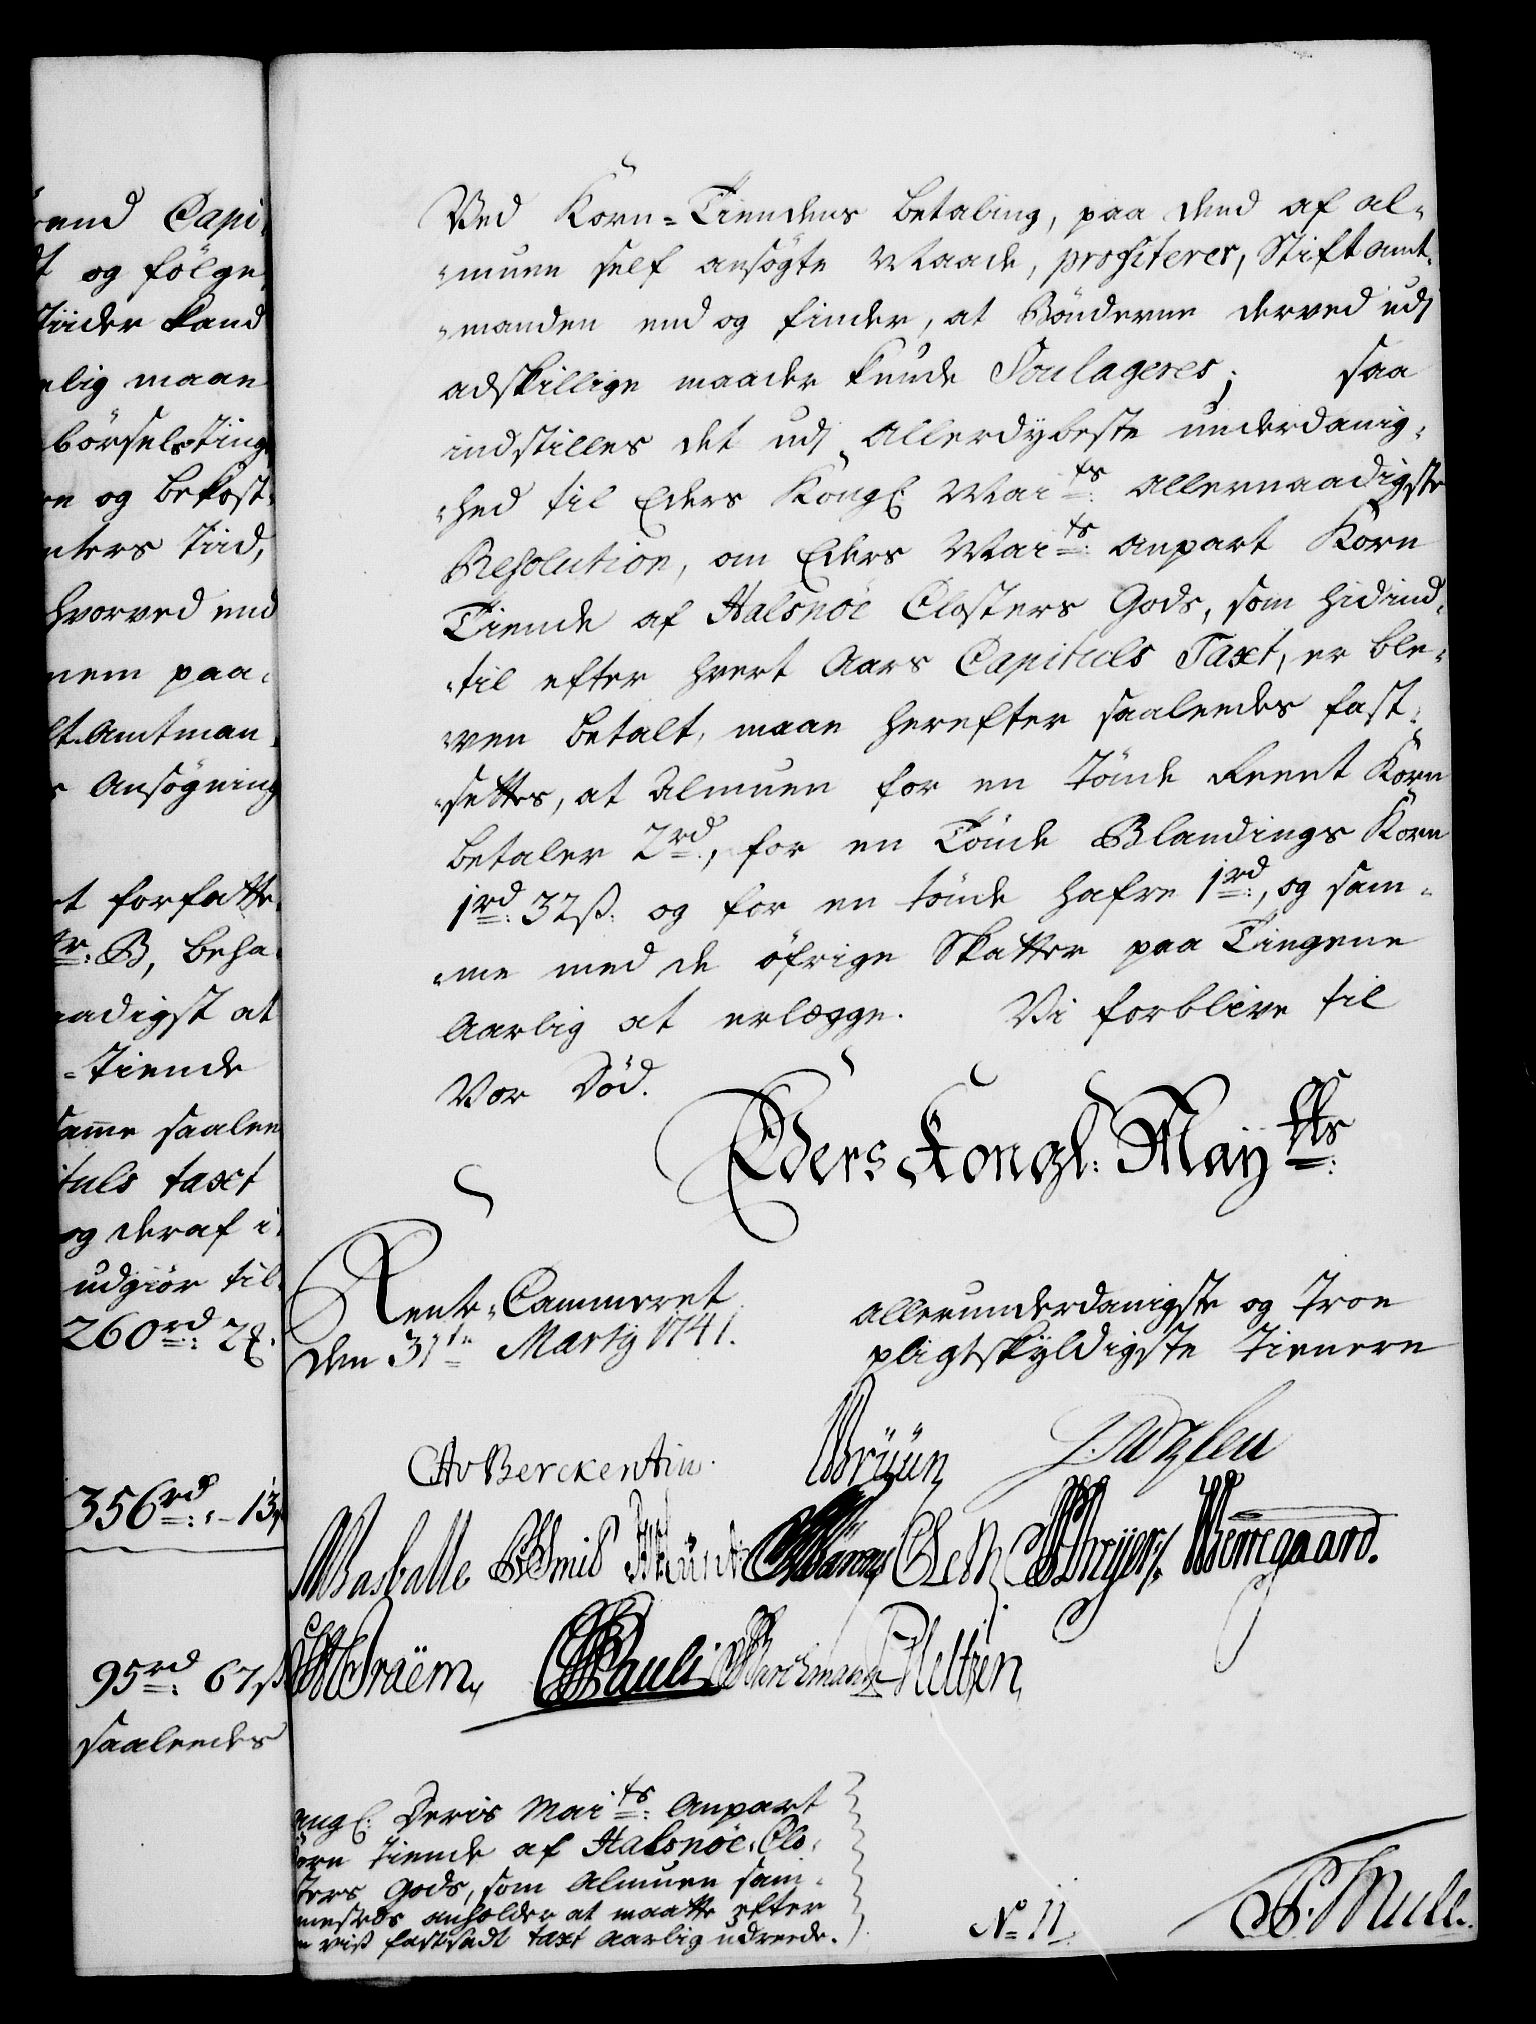 rend Capi-
t og følge
Tiider kand
elig maae
börsels Ting
en og bekost-
nters Tiid,
hvorved end
nem paa-
ft Amtman-
s Ansøgning
t forfatte
tr. B, beha-
aadigst at
-Tiende
samme saalee
tuls taxt
og deraf i-
udgiör til-
260rd: 2ß.
356rd: „ 13ß
95rd: 67ß
saaleedes
Ved Korn-Tiendens betaling, paa dend af al-
muen self ansøgte Maade, profiterer, Stiftamt-
manden end og finder, at Bönderne derved udj
adskillige maader kunde Soulageres; saa
indstilles det udj allerdybeste underdanig-
hed til Eders Kongl: Maits: allernaadigste
Resolution, om Eders Maits: anpart Korn
Tiende af Halsnöe Closters Gods, som hidind-
til efter hvert Aars Capituls Taxt, er ble-
ven betalt, maae herefter saaleedes fast-
settes, at Almuen for en Tönde Reent Korn
betaler 2rd:, for en Tönde Blandings Korn
1rd: 32ß: og for en tönde hafre 1rd:, og sam-
me med de öfrige Skatter paa Tingene
Aarlig at erlægge. Vi forblive til
Vor Död.
Eders Kongl: Mayts:
Rente-Cammeret
den 31te Martij 1741.
allerunderdanigste og Troe
pligtskyldigste Tienere
CAvBerckentin.
Brüün
Benzon
Braëm
Pauli
Neltzen
ongl: Deris Maits: Anpart
orn Tiende af Halsnöe Clo-
sters Gods, som Almuen sam-
mesteds anholder at maatte efter
n viß fastsadt taxt Aarlig udreede.
No 11.